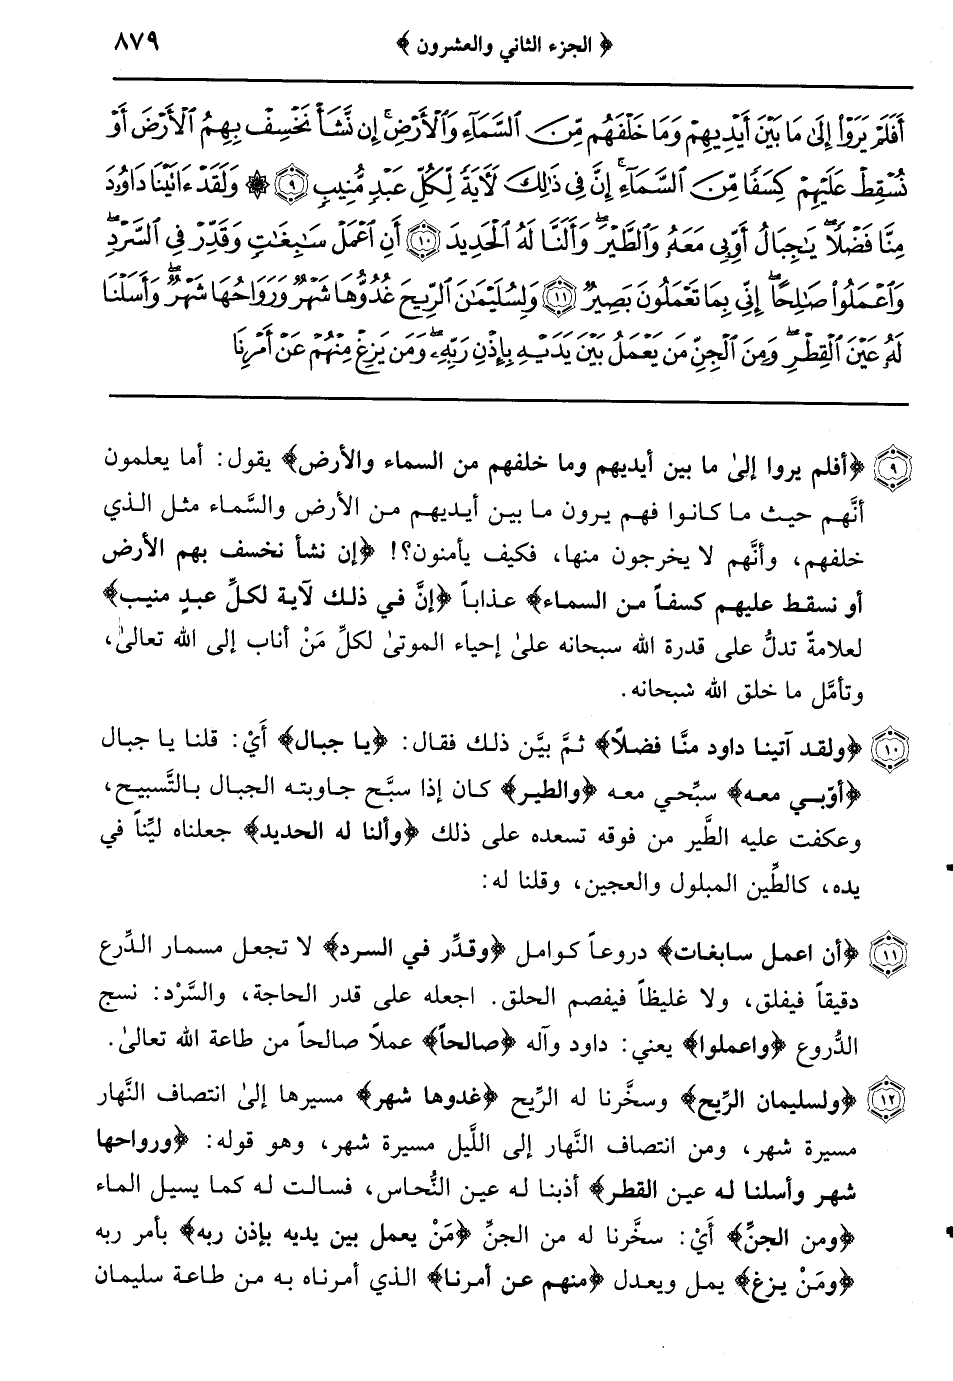 ﴿ الجزء الثاني والعشرون ﴾ ٨٧٩
أَفَلَمْ يَرَوْا۟ إِلَىٰ مَا بَيْنَ أَيْدِيهِمْ وَمَا خَلْفَهُم مِّنَ ٱلسَّمَآءِ وَٱلْأَرْضِ ۚ إِن نَّشَأْ نَخْسِفْ بِهِمُ ٱلْأَرْضَ أَوْ
نُسْقِطْ عَلَيْهِمْ كِسَفًا مِّنَ ٱلسَّمَآءِ ۚ إِنَّ فِى ذَٰلِكَ لَـَٔايَةً لِّكُلِّ عَبْدٍ مُّنِيبٍ ٩ ۞ وَلَقَدْ ءَاتَيْنَا دَاوُۥدَ
مِنَّا فَضْلًا ۖ يَـٰجِبَالُ أَوِّبِى مَعَهُۥ وَٱلطَّيْرَ ۖ وَأَلَنَّا لَهُ ٱلْحَدِيدَ ١٠ أَنِ ٱعْمَلْ سَـٰبِغَـٰتٍ وَقَدِّرْ فِى ٱلسَّرْدِ ۖ
وَٱعْمَلُوا۟ صَـٰلِحًا ۖ إِنِّى بِمَا تَعْمَلُونَ بَصِيرٌ ١١ وَلِسُلَيْمَـٰنَ ٱلرِّيحَ غُدُوُّهَا شَهْرٌ وَرَوَاحُهَا شَهْرٌ ۖ وَأَسَلْنَا
لَهُۥ عَيْنَ ٱلْقِطْرِ ۖ وَمِنَ ٱلْجِنِّ مَن يَعْمَلُ بَيْنَ يَدَيْهِ بِإِذْنِ رَبِّهِۦ ۖ وَمَن يَزِغْ مِنْهُمْ عَنْ أَمْرِنَا
٩ ﴿أفلم يروا إلىٰ ما بين أيديهم وما خلفهم من السماء والأرض﴾ يقول: أما يعلمون
أنَّهم حيث ما كانوا فهم يرون ما بين أيديهم من الأرض والسَّماء مثل الذي
خلفهم، وأنَّهم لا يخرجون منها، فكيف يأمنون؟! ﴿إن نشأ نخسف بهم الأرض
أو نسقط عليهم كسفاً من السماء﴾ عذاباً ﴿إنَّ في ذلك لآية لكلِّ عبدٍ منيب﴾
لعلامةً تدلُّ على قدرة الله سبحانه علىٰ إحياء الموتىٰ لكلِّ مَنْ أناب إلى الله تعالىٰ،
وتأمَّل ما خلق الله شبحانه.
١٠ ﴿ولقد آتينا داود منَّا فضلاً﴾ ثمَّ بيَّن ذلك فقال: ﴿يا جبال﴾ أَيْ: قلنا يا جبال
﴿أوِّبي معه﴾ سبِّحي معه ﴿والطير﴾ كان إذا سبَّح جاوبته الجبال بالتَّسبيح،
وعكفت عليه الطَّير من فوقه تسعده على ذلك ﴿وألنا له الحديد﴾ جعلناه ليِّناً في
يده، كالطِّين المبلول والعجين، وقلنا له:
١١ ﴿أن اعمل سابغات﴾ دروعاً كوامل ﴿وقدِّر في السرد﴾ لا تجعل مسمار الدِّرع
دقيقاً فيفلق، ولا غليظاً فيفصم الحلق. اجعله على قدر الحاجة، والسَّرْد: نسج
الدُّروع ﴿واعملوا﴾ يعني: داود وآله ﴿صالحاً﴾ عملاً صالحاً من طاعة الله تعالىٰ.
١٢ ﴿ولسليمان الرِّيح﴾ وسخَّرنا له الرِّيح ﴿غدوها شهر﴾ مسيرها إلىٰ انتصاف النَّهار
مسيرة شهر، ومن انتصاف النَّهار إلى اللَّيل مسيرة شهر، وهو قوله: ﴿ورواحها
شهر وأسلنا له عين القطر﴾ أذبنا له عين النُّحاس، فسالت له كما يسيل الماء
﴿ومن الجنِّ﴾ أَيْ: سخَّرنا له من الجنِّ ﴿مَنْ يعمل بين يديه بإذن ربه﴾ بأمر ربه
﴿ومَنْ يزغ﴾ يمل ويعدل ﴿منهم عن أمرنا﴾ الذي أمرناه به من طاعة سليمان